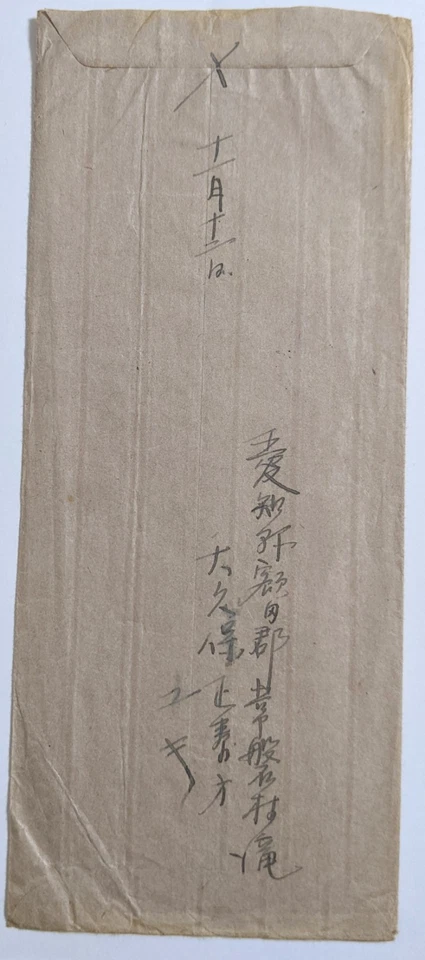 〆
十一月十二日
愛知県額田郡常磐村滝
大久保正春方
ユキ